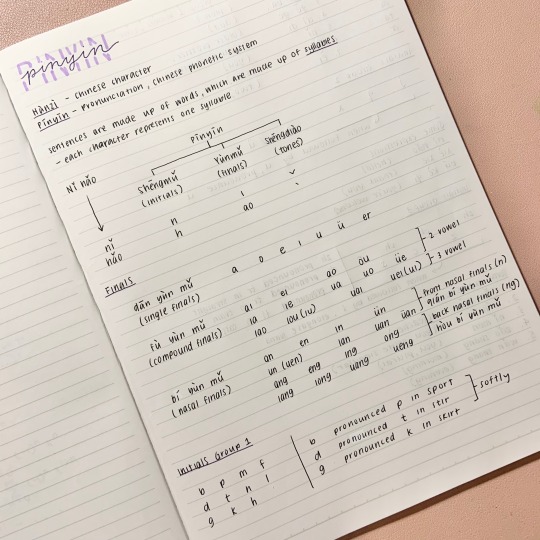 PINYIN
pinyin
Hànzì - chinese character
Pīnyīn - Pronunciation, chinese phonetic system
sentences are made up of words, which are made up of syllables
- each character represents one syllable
Pīnyīn
Nǐ hǎo
Shēngmǔ Yùnmǔ Shēngdiào
(initials) (finals) (tones)
nǐ n i ˇ
hǎo h ao ˇ
Finals
dān yùn mǔ a o e i u ü er
(single finals)
fù yùn mǔ ai ei ao ou ] 2 vowel
(compound finals) ia ie ua uo üe
iao iou (iu) uai uei (ui) ] 3 vowel
bí yùn mǔ an en in ün ] front nasal finals (n)
(nasal finals) un (uen) ian uan üan qián bí yùn mǔ
ang eng ing ong ] back nasal finals (ng)
iang iong uang ueng hòu bí yùn mǔ
Initials Group 1
b p m f b pronounced p in sport ] softly
d t n l d pronounced t in stir
g k h g pronounced k in skirt